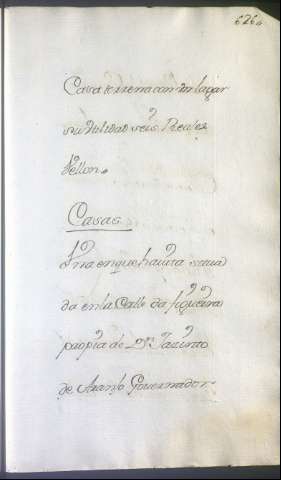 626.
Casa terrena con un lagar
su Utilidad seis Reales
Vellon.
Casas
Una en que havita situa
da en la Calle da figueira
propia de Dn Jazinto
de Araujo Governador